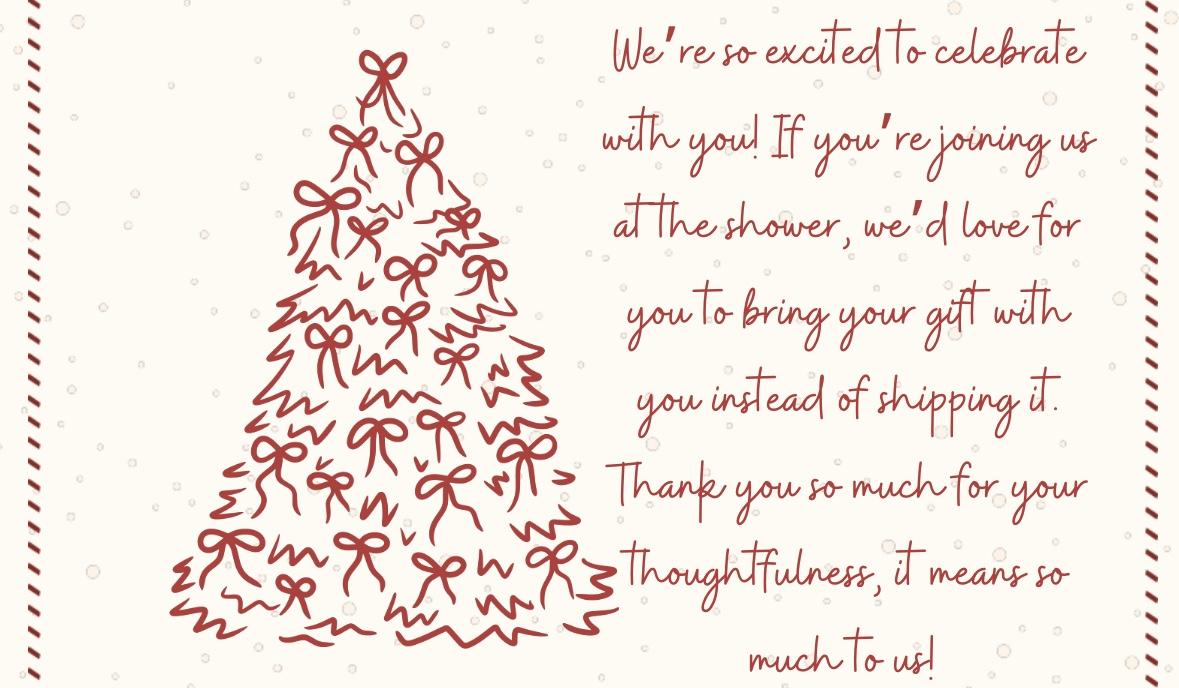 We're so excited to celebrate
with you! If you're joining us
at the shower, we'd love for
you to bring your gift with
you instead of shipping it.
Thank you so much for your
thoughtfulness, it means so
much to us!